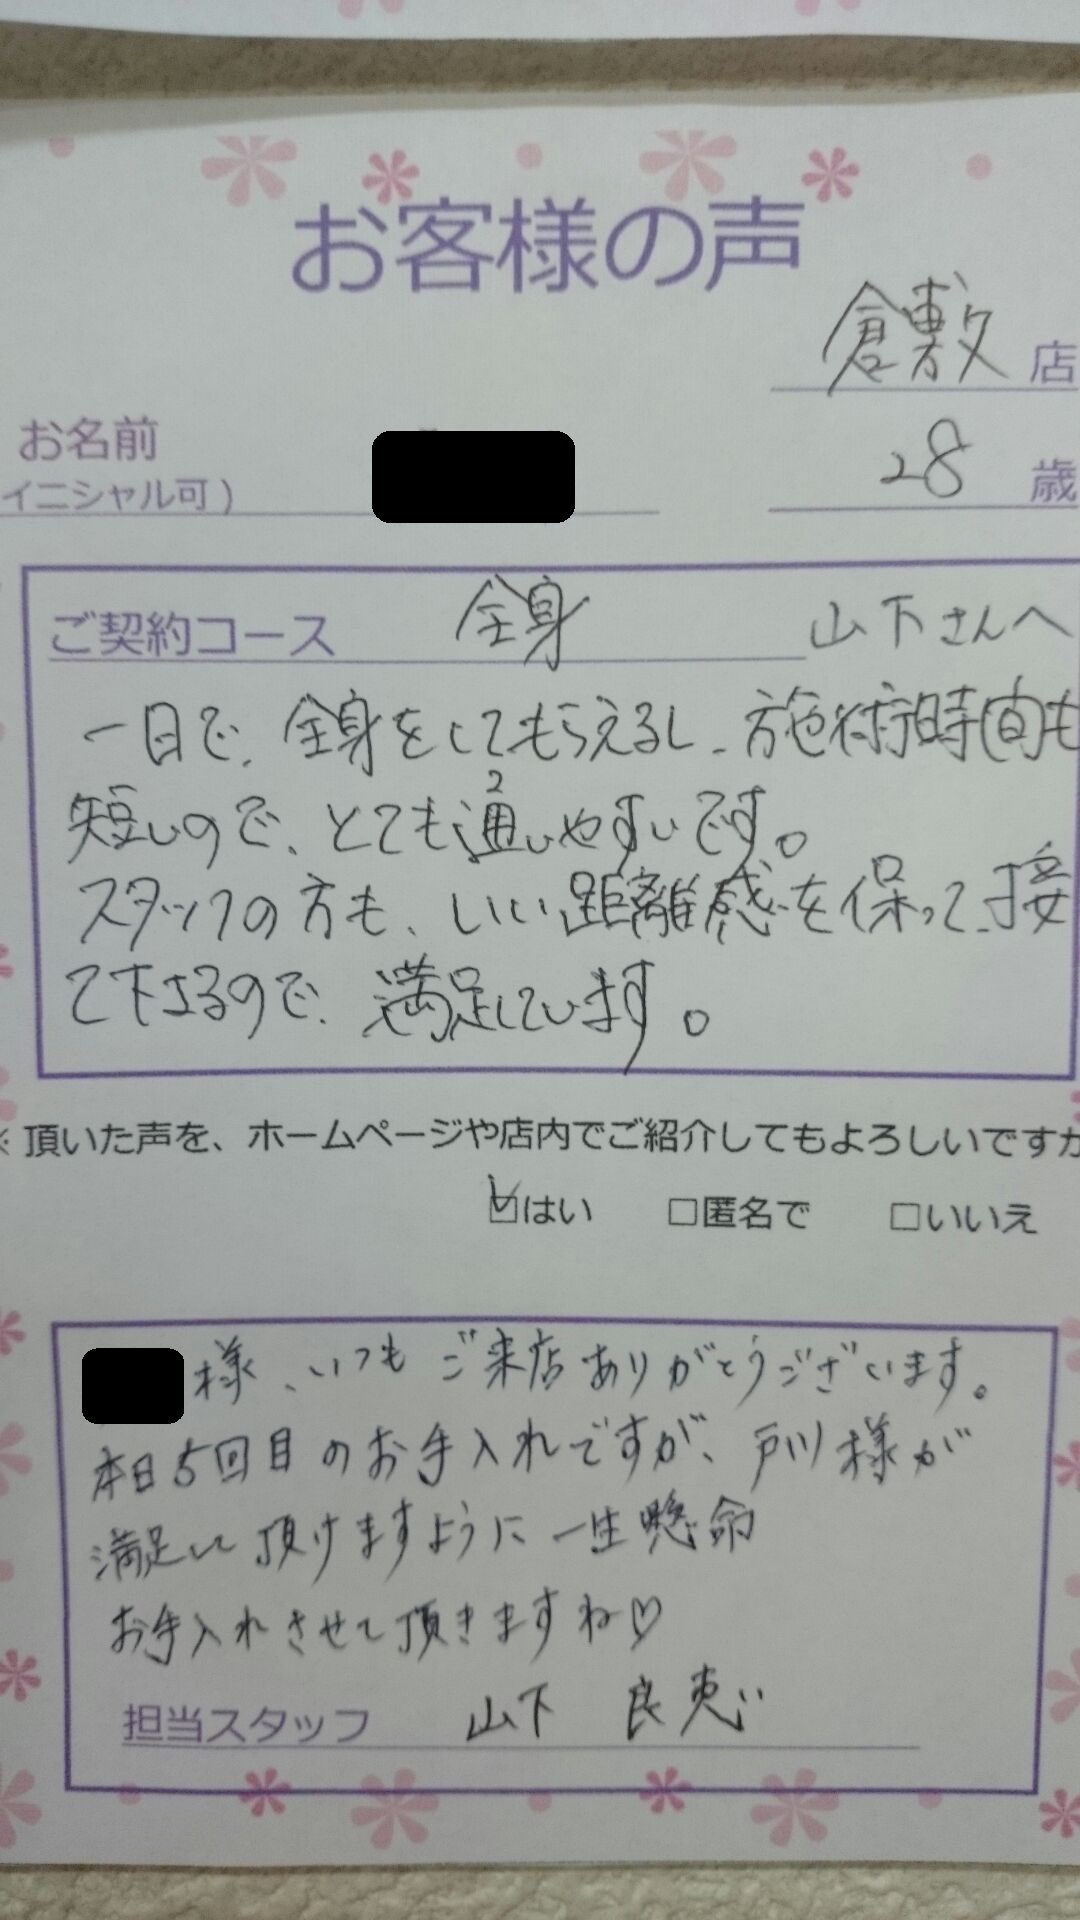 お客様の声
倉敷 店
お名前
イニシャル可）
28 歳
ご契約コース 全身 山下さんへ
一日で、全身をしてもらえるし、施術時間も
短いので、とても通いやすいです。
スタッフの方も、いい距離感を保って、接
て下さるので、満足しています。
※頂いた声を、ホームページや店内でご紹介してもよろしいですか
☑はい □匿名で □いいえ
様、いつもご来店ありがとうございます。
本日5回目のお手入れですが、戸川様が
満足して頂けますように一生懸命
お手入れさせて頂きますね♡
担当スタッフ 山下 良恵